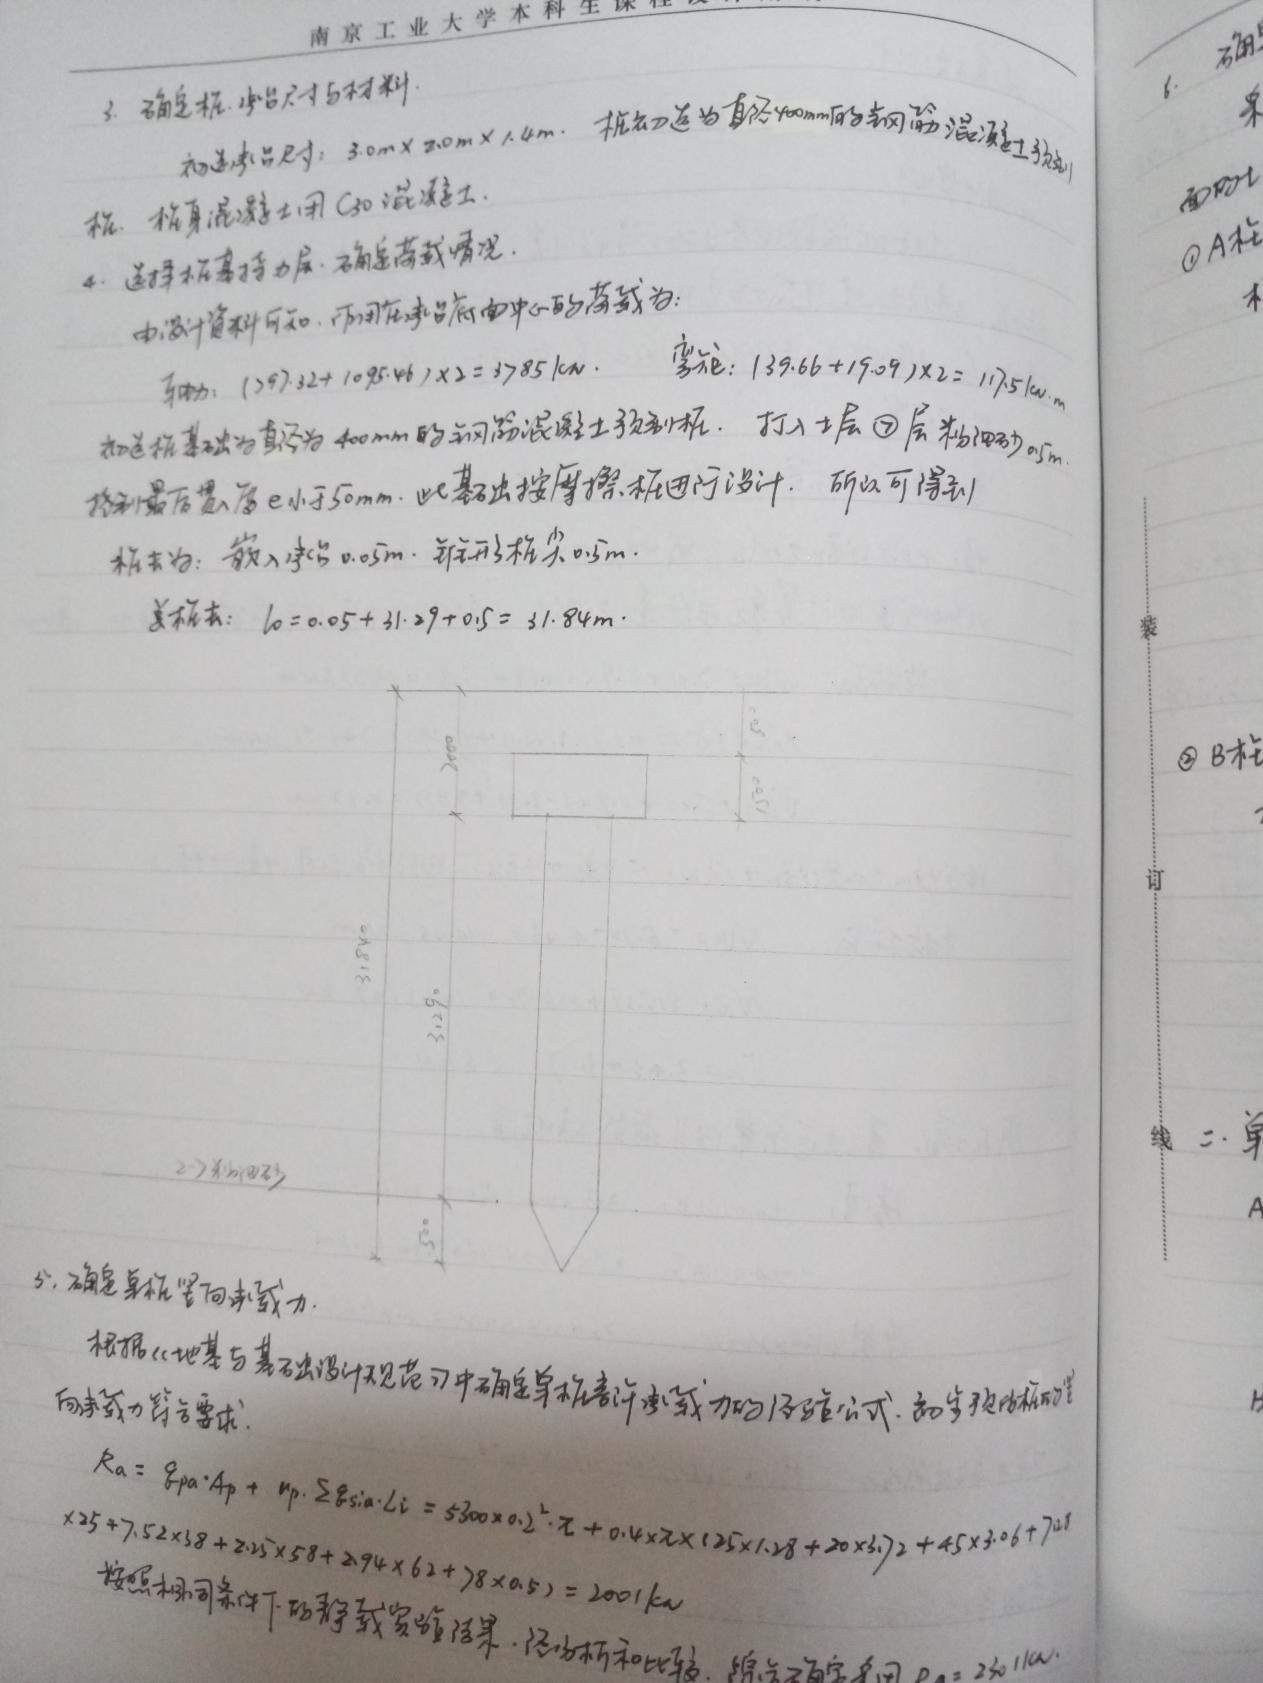 南京工业大学本科生课程设计
3. 确定桩、承台尺寸与材料.
初选承台尺寸: 3.0m×2.0m×1.4m. 桩初选为直径400mm的钢筋混凝土预制
桩. 桩身混凝土用C30混凝土.
4. 选择桩基持力层. 确定荷载情况.
由设计资料可知, 作用在承台底面中心的荷载为:
轴力: (797.32+1095.46)×2=3785kN. 弯矩: (39.66+19.09)×2=117.5kN·m
初选桩基础为直径为400mm的钢筋混凝土预制桩. 打入土层⑦层粉细砂0.5m.
控制最后贯入度e小于50mm. 此基础按摩擦桩进行设计. 所以可得到
桩长为: 嵌入承台0.05m. 锥形桩尖0.5m.
总桩长: l0=0.05+31.29+0.5=31.84m.
2000
31840
31290
500
2-7粉细砂
5. 确定单桩竖向承载力.
根据《地基与基础设计规范》中确定单桩容许承载力的经验公式. 初步预估桩的竖
向承载力符合要求.
Ra= qpa·Ap + up·Σqsia·Li = 5300×0.2²·π+0.4×π×(25×1.28+20×3.72+45×3.06+7.28
×25+7.52×38+2.25×58+2.94×62+78×0.5)=2001kN
按照相同条件下的静载实验结果. 经分析和比较. 综合确定采用Ra=2301kN.
装
订
线
6. 确
面
①A桩
②B桩
二. 单
A